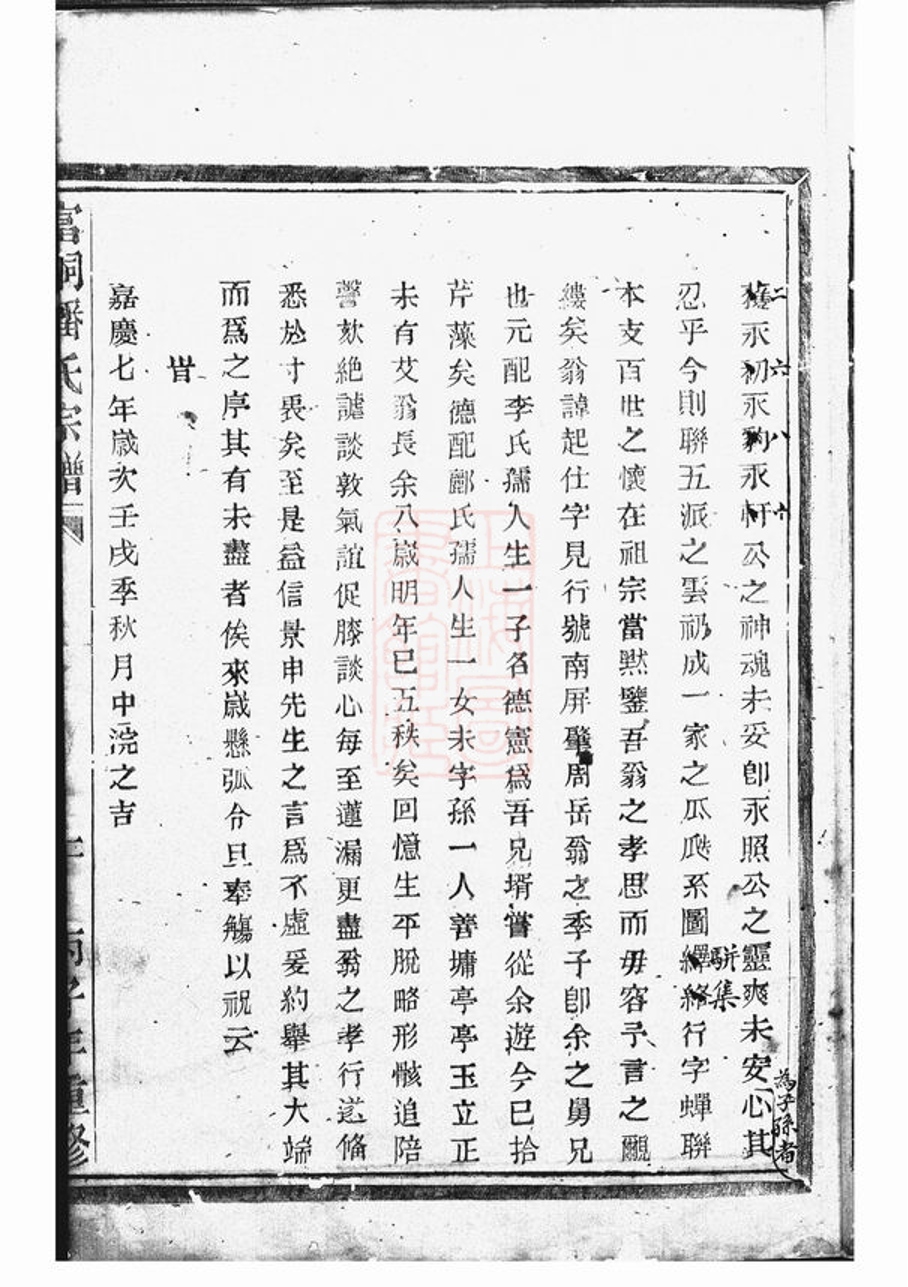 二 六 八 十
獲永初永豹永軒公之神魂未妥卽永照公之靈爽未安心其
為子孫者
忍乎今則聯五派之雲礽成一家之瓜瓞系圖繹絡行字蟬聯
駢集
本支百世之懷在祖宗當黙鑒吾翁之孝思而毋容予言之覼
縷矣翁諱起仕字見行號南屏肇周岳翁之季子卽余之舅兄
也元配李氏孺人生一子名德憲爲吾兄壻嘗從余遊今已拾
芹藻矣德配酈氏孺人生一女未字孫一人善墉亭亭玉立正
未有艾翁長余八嵗明年已五秩矣回憶生平脫略形骸追陪
謦欬絶謔談敦氣誼促膝談心每至蓮漏更盡翁之孝行遂俻
悉於寸衷矣至是益信景申先生之言爲不虛爰約舉其大端
而爲之序其有未盡者俟來嵗懸弧令旦奉觴以祝云
旹
嘉慶七年嵗次壬戌季秋月中浣之吉
潘氏宗譜
丙子年重修